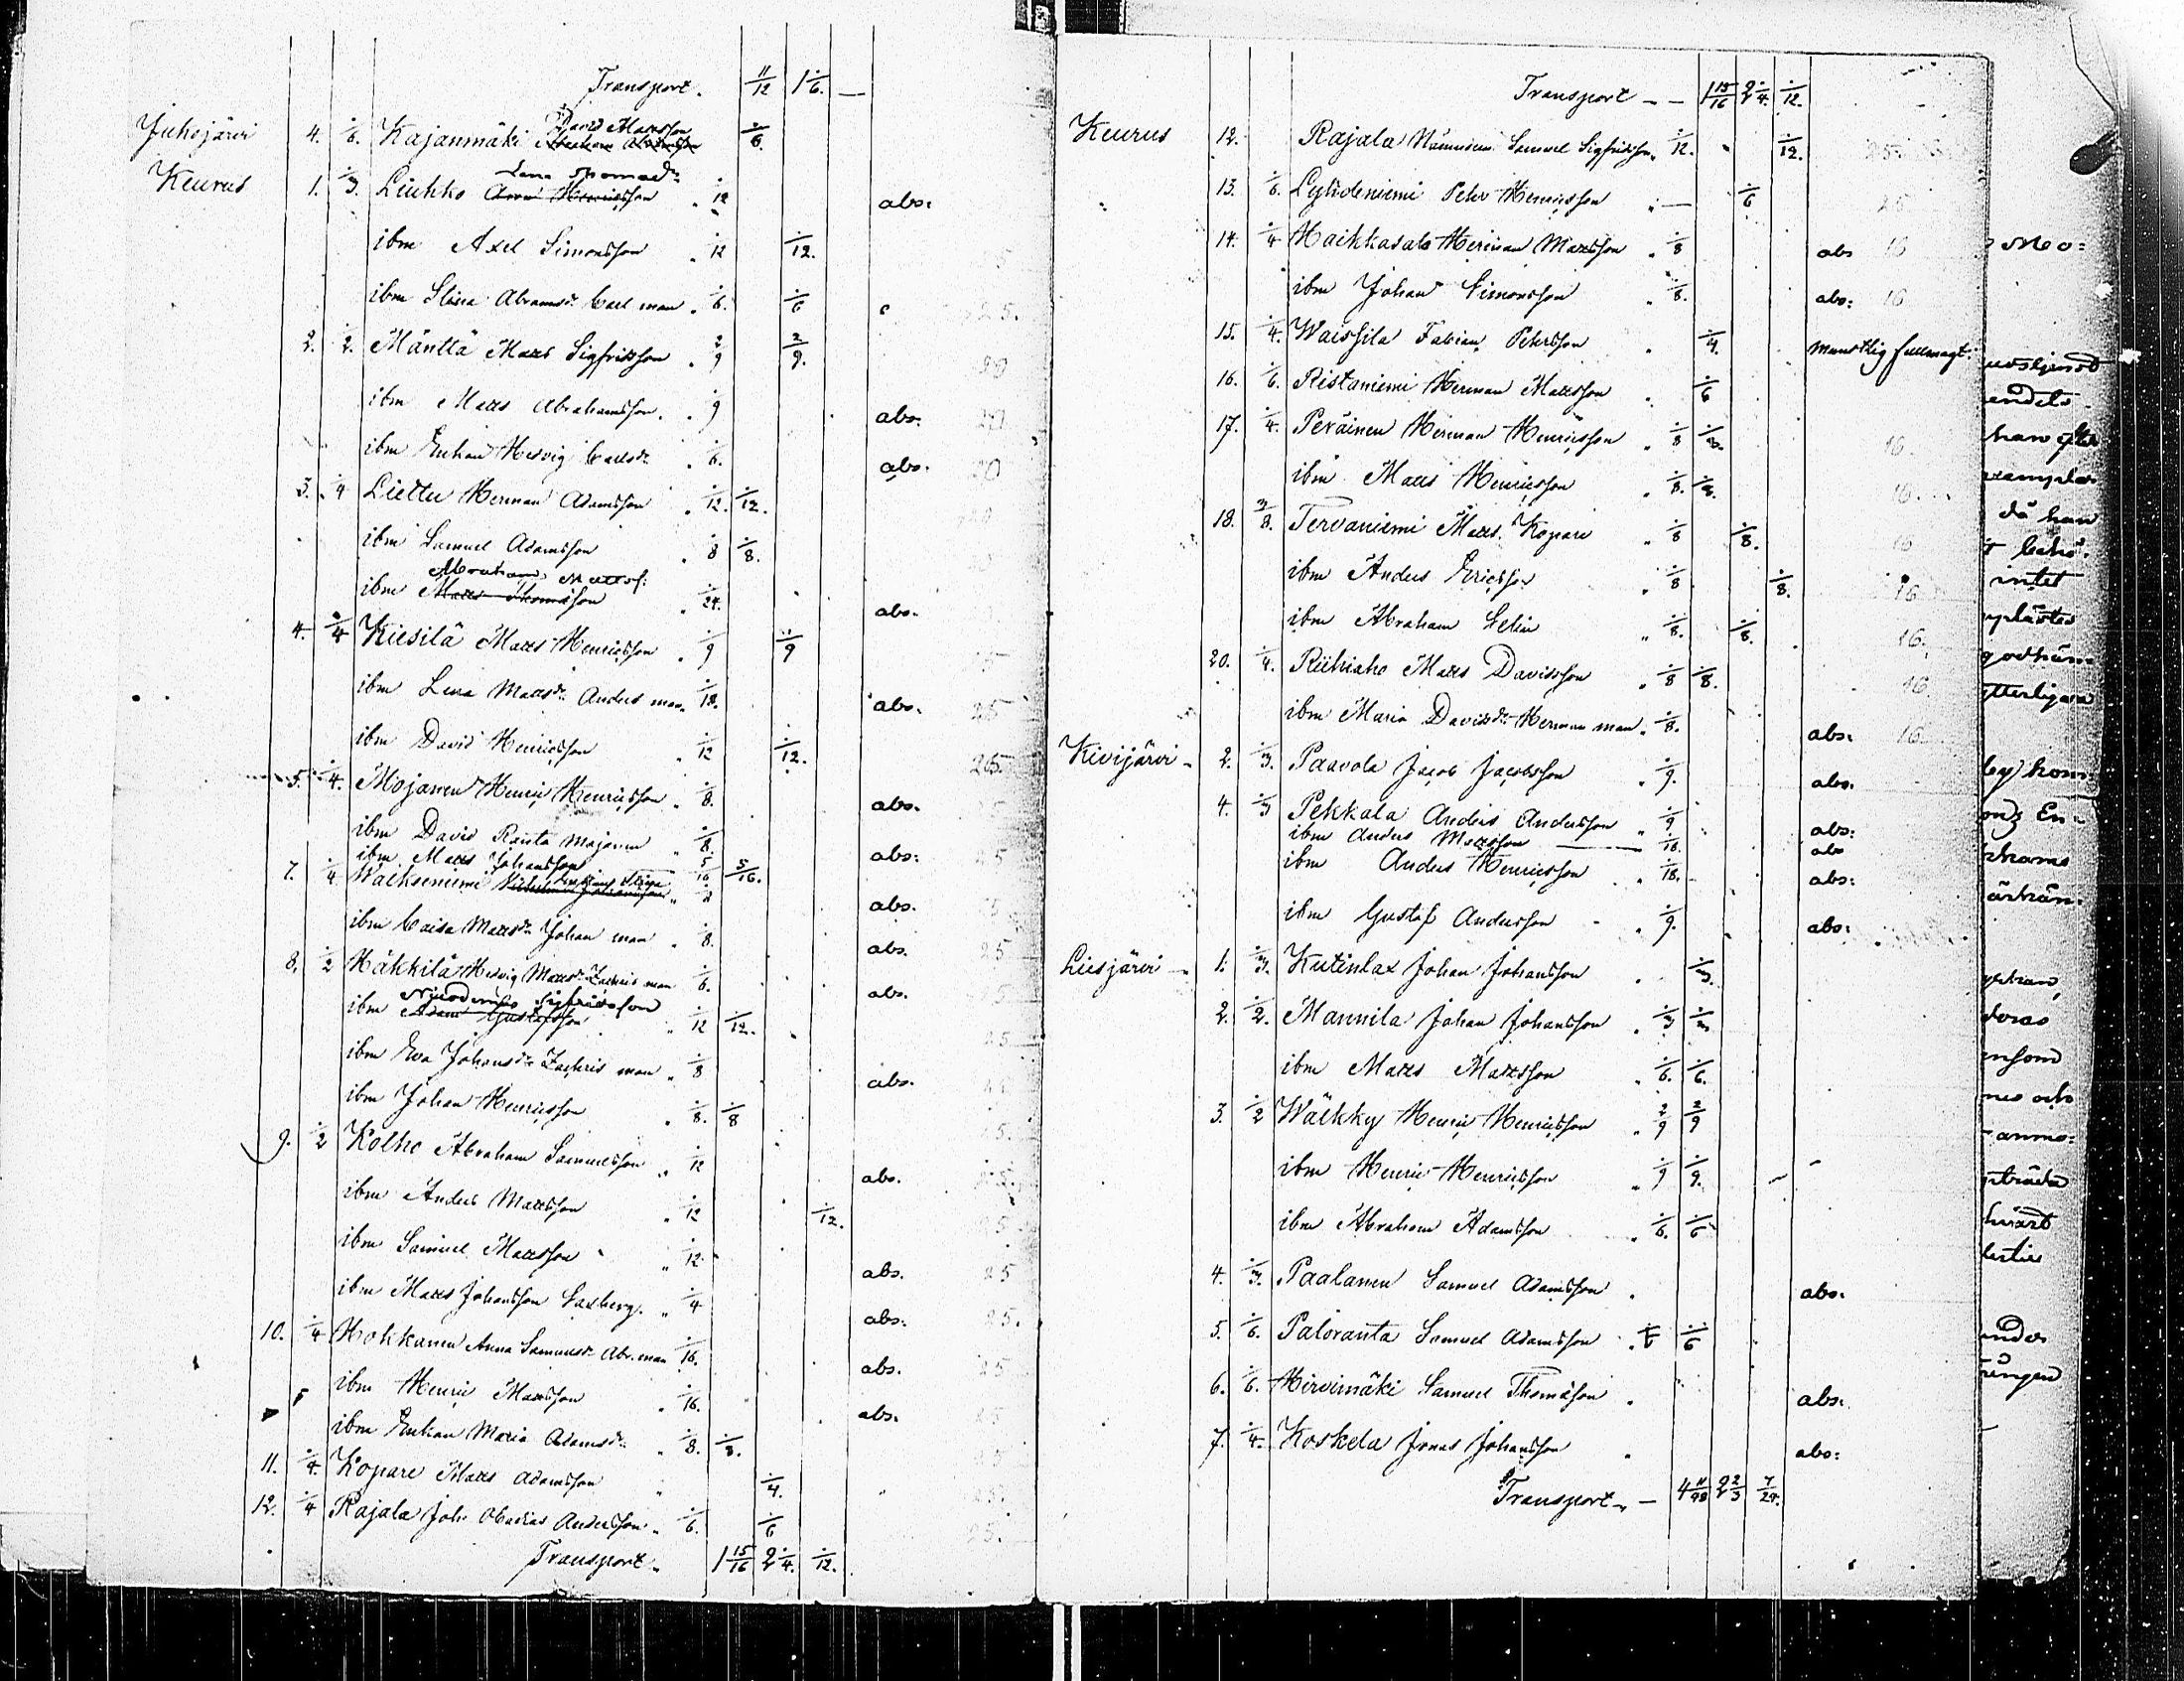 Transport. 11/12 1 1/6. —
Juhojärvi 4. 1/6. Kajanmäki David Mattsson 1/6.
Keurus 1. 1/3. Liuhko Lena Thomasdr. 1/12 abs:
ibm Axel Simonsson 1/12 1/12.
ibm Stina Abramsdr. Carl man 1/6. 1/6
2. 1/2. Mänttä Matts Sigfridsson 2/9 2/9.
ibm Matts Abrahamsson 1/9 abs.
ibm Enkan Hedvig Carlsdr. 1/6. abs.
3. 1/4 Liettu Herman Adamsson 1/12. 1/12.
ibm Samuel Adamsson 1/8 1/8.
Abraham Mattss:
ibm Matts Thomasson 1/24. abs.
4. 1/4 Kiesilä Matts Henricsson 1/9 1/9
ibm Lena Mattsdr. Anders man 1/18. abs. 25
ibm David Henricsson 1/12 1/12. 25.
5. 1/4. Mojanen Henric Henricsson 1/8. abs.
ibm David Ranta Mojanen 1/8. abs: 25
ibm Matts Johansson 5/16 5/16.
7. 1/4 Waikseniemi abs.
ibm Caisa Mattsdr. Johan man 1/8. abs. 25
8. 1/2 Häkkilä Hedvig Mattsdr. Zachris man 1/6. abs.
Nicodemus Sigfridsson
ibm Adam Gustafsson 1/12 1/12. 25
ibm Eva Johansdr. Zachris man 1/8 abs.
ibm Johan Henricsson 1/8. 1/8
9. 1/2 Kolho Abraham Samuelsson 1/12 abs.
ibm Anders Mattsson 1/12 1/12. 25
ibm Samuel Mattsson 1/12. abs. 25
ibm Matts Johansson Saxberg. 1/4 abs. 25.
10. 1/4 Hokkanen Anna Samuelsdr. Abr. man 1/16. abs. 25
ibm Henric Mattsson 1/16. abs. 25
ibm Enkan Maria Adamsdr. 1/8. 1/8.
11. 1/4. Kopare Matts Adamsson 1/4. 25.
12. 1/4 Rajala Joh. Obadias Andersson 1/6. 1/6 25.
Transport. 1 15/16 2 1/4. 1/12.
Transport — 1 15/16 2 1/4. 1/12.
Keurus 12. Rajala Samuel Sigfridsson 1/12. 1/12. 25.
13. 1/6. Lyhdeniemi Petter Henricsson — 1/6 25
14. 1/4 Haikkasalo Herman Mattsson 1/8 abs 16
ibm Johan Simonsson 1/8. abs: 16
15. 1/4. Waissila Fabian Pettersson 1/4. Muntlig fullmagt.
16. 1/6. Ristaniemi Herman Mattsson 1/6
17. 1/4. Peräinen Herman Henricsson 1/8 1/8. 16.
ibm Matts Henricsson 1/8. 1/8. 16.
18. 3/8. Tervaniemi Matts Kopare 1/8 1/8. 16
ibm Anders Ericsson 1/8 1/8. 16
ibm Abraham Selin 1/8. 1/8. 16.
20. 1/4. Riihiaho Matts Davidsson 1/8 1/8. 16.
ibm Maria Davidsdr. Herman man 1/8. abs. 16.
Kivijärvi 2. 1/3. Paavola Jacob Jacobsson 1/9. abs.
4. 1/3 Pekkala Anders Andersson 1/9 abs:
ibm Anders Mattsson 1/18. abs
ibm Anders Henricsson 1/18. abs:
ibm Gustaf Andersson 1/9. abs:
Liesjärvi 1. 1/3. Kutinlax Johan Johansson 1/3.
2. 1/2. Mannila Johan Johansson 1/3 1/3
ibm Matts Mattsson 1/6. 1/6.
3. 1/2 Wäkky Henric Henricsson 2/9 2/9
ibm Henric Henricsson 1/9 1/9.
ibm Abraham Adamsson 1/6. 1/6
4. 1/3. Paalanen Samuel Adamsson abs.
5. 1/6. Paloranta Samuel Adamsson 1/6 1/6
6. 1/6. Hirvimäki Samuel Thomasson abs.
7. 1/4. Koskela Jonas Johansson abs:
Transport 2 2/3 7/24.